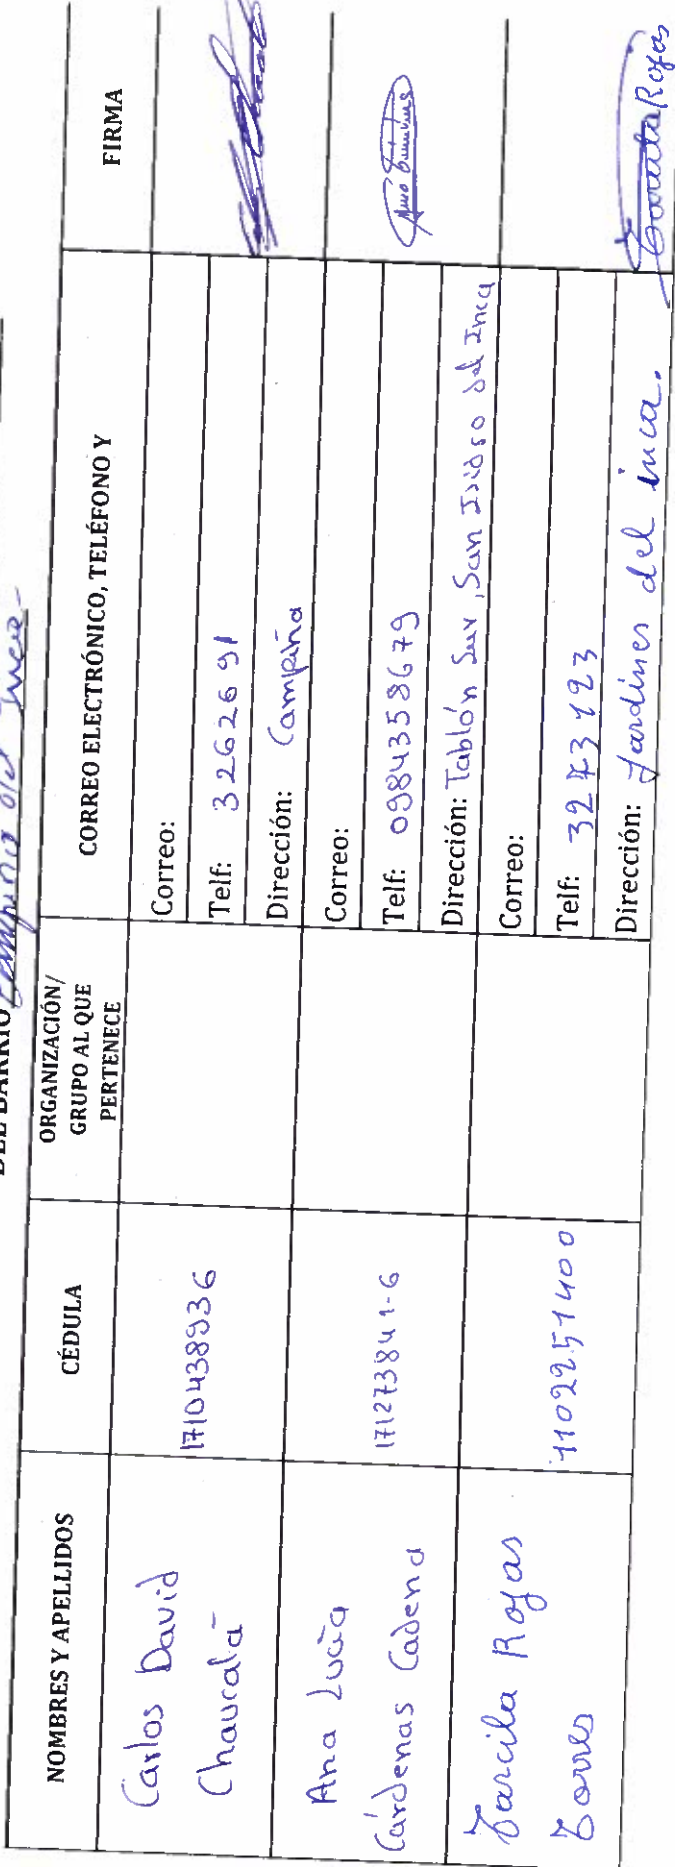 DEL BARRIO Campiña del Inca
NOMBRES Y APELLIDOS
CÉDULA
ORGANIZACIÓN/
GRUPO AL QUE
PERTENECE
CORREO ELECTRÓNICO, TELÉFONO Y
FIRMA
Carlos David
1710438936
Correo:
Telf: 3262691
Dirección: Campiña
Ana Lucía
Cárdenas Cadena
171273841-6
Correo:
Telf: 0984358679
Dirección: Tablón Sur, San Isidro del Inca
Tarcila Rojas
Torres
1102251400
Correo:
Telf: 3273123
Dirección: Jardines del inca.
Rojas